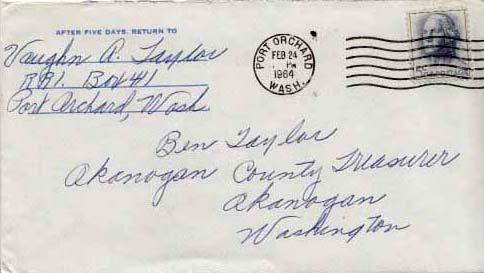 AFTER FIVE DAYS, RETURN TO
Vaughn A. Taylor
RR1. Box 41
Port Orchard, Wash
PORT ORCHARD
FEB 24
PM
1964
WASH.
Ben Taylor
Akanogan County Treasurer
Akanogan
Washington